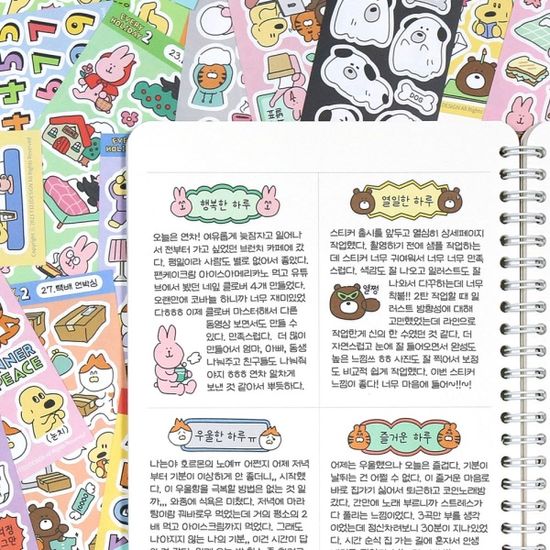 EVERY HOLIDAY 2
23.
DOG
27.택배 언박싱
INNER PEACE
(눈치)
행복한 하루
오늘은 연차! 여유롭게 늦잠자고 일어나
서 전부터 가고 싶었던 브런치 카페에 갔
다. 평일이라 사람도 별로 없어서 좋았다.
팬케이크랑 아이스아메리카노 먹고 유튜
브에서 봤던 네잎 클로버 4개 만들었다.
오랜만에 코바늘 하니까 너무 재미있었
다ㅎㅎㅎ 이제 클로버 마스터해서 다른
동영상 보면서도 만들 수
있다. 만족스럽다. 더 많이
만들어서 엄마, 아빠, 동생
나눠주고 친구들도 나눠줘
야지 ㅎㅎㅎ 연차 알차게
보낸 것 같아서 뿌듯하다.
열일한 하루
스티커 출시를 앞두고 열심히 상세페이지
작업했다. 촬영하기 전에 샘플 작업하는
데 스티커 너무 귀여워서 너무 너무 만족
스럽다. 색감도 잘 나오고 일러스트도 잘
나와서 다꾸하는데 너무
착붙!! 2탄 작업할 때 일
러스트 방향성에 대해
고민했었는데 라인으로
작업한게 신의 한 수였던 것 같다. 더
자연스럽고 눈에 잘 들어오면서 완성도
높은 느낌쓰 ㅎㅎ 사진도 잘 찍어서 보정
도 비교적 쉽게 작업했다. 이번 스티커
느낌이 좋다! 너무 마음에 들어~!!~!
얌쩜
우울한 하루ㅠ
나는야 호르몬의 노예ㅠ 어쩐지 어제 저녁
부터 기분이 이상하게 안 좋더니,, 시작했
다. 이 우울함을 극복할 방법은 없는 것 일
까,,, 와중에 식욕은 미쳤다. 저녁에 마라
탕이랑 꿔바로우 먹었는데 거의 평소의 2
배 먹고 아이스크림까지 먹었다. 그래도
나아지지 않는 나의 기분,, 이건 시간이 답
즐거운 하루
어제는 우울했으나 오늘은 즐겁다. 기분이
날뛰는 건 어쩔 수 없다. 이 즐거운 마음으로
바로 집가기 싫어서 퇴근하고 코인노래방
갔다. 간만에 노래 부르니까 스트레스가
다 풀리는 느낌이었다. 3곡만 부를 생각
이었는데 정신차려보니 30분이 지나있었
다. 시간 순삭 집 가는 길에 혼자서 했다